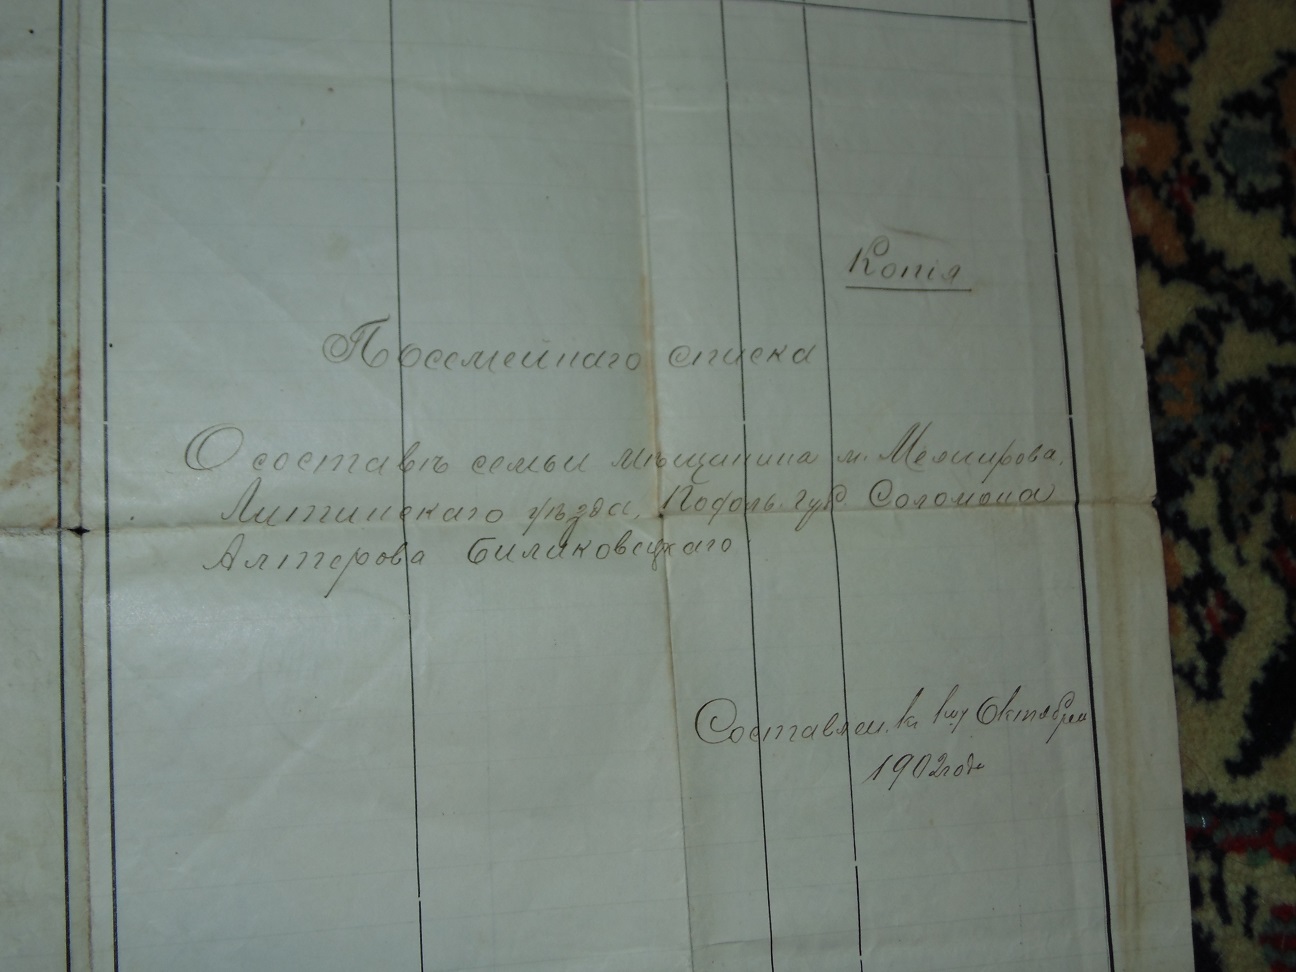 Копія
Посемейнаго списка
О составѣ семьи мѣщанина м. Межирова,
Литинскаго уѣзда, Подоль. губ. Соломона
Алтерова Биликовецкаго
Составлен. къ Октября
1902 года